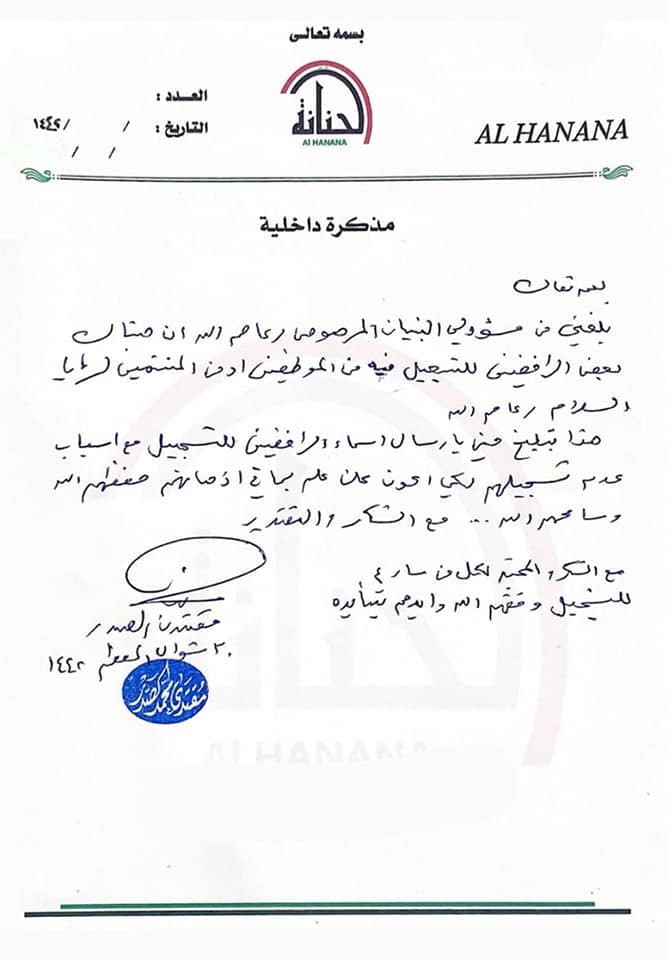 بسمه تعالى
العدد :
التاريخ : / / ١٤٤٢
/ /
الحنانة
Al HANANA
AL HANANA
مذكرة داخلية
بسمه تعالى
بلغني من مسؤولي البنيان المرصوص رعاهم الله ان هناك
بعض الرافضين للتسجيل فيه من الموظفين او من المنتمين لسرايا
السلام رعاهم الله
هذا تبليغ مني بارسال اسماء الرافضين للتسجيل مع اسباب
عدم تسجيلهم لكي اكون على علم بما في اذهانهم حفظهم الله
وسامحهم الله ... مع الشكر والتقدير
مع الشكر والمحبة لكل من سارع
للتسجيل وفقهم الله وايدهم بتأييده
مقتدى الصدر
٢٠ شوال المعظم ١٤٤٢
مقتدى محمد الصدر
AL HANANA